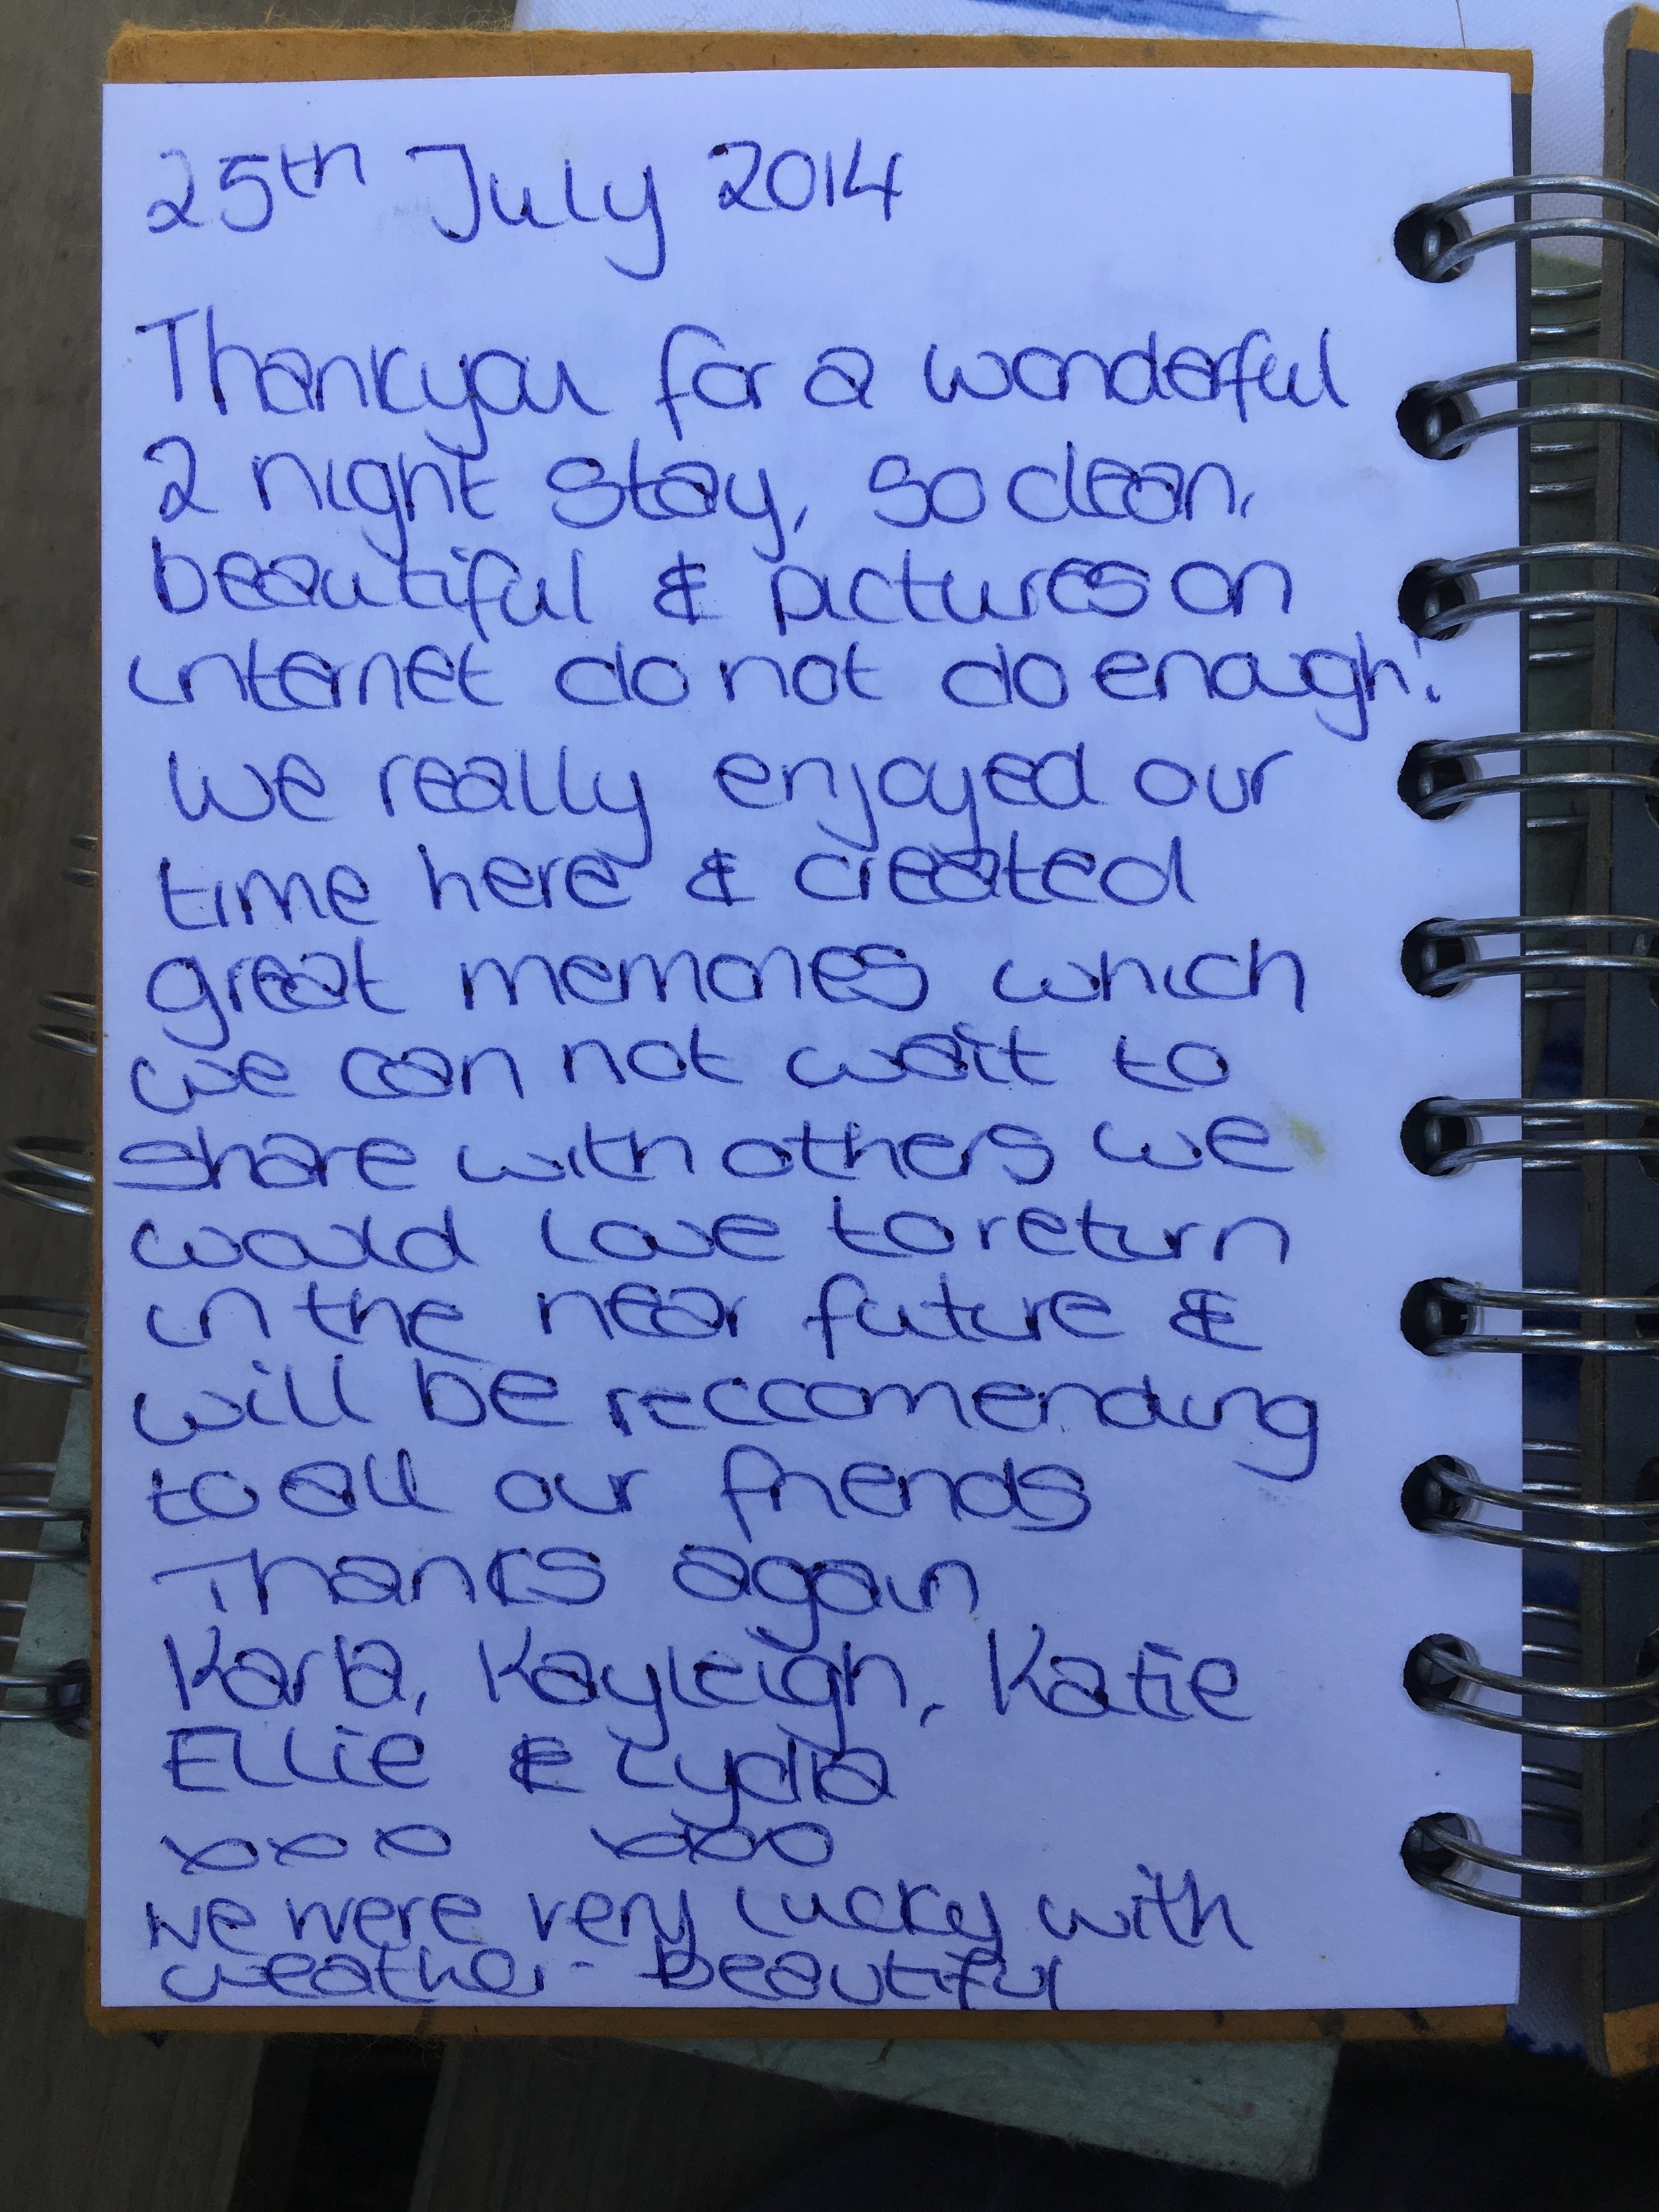 25th July 2014
Thankyou for a wonderful
2 night stay, so clean,
beautiful & pictures on
internet do not do enough!
We really enjoyed our
time here & created
great memories which
we can not wait to
share with others we
would love to return
in the near future &
will be reccomending
to all our friends
Thanks again
Karla, Kayleigh, Katie
Ellie & Lydia
xxx xxx
we were very lucky with
weather - beautiful